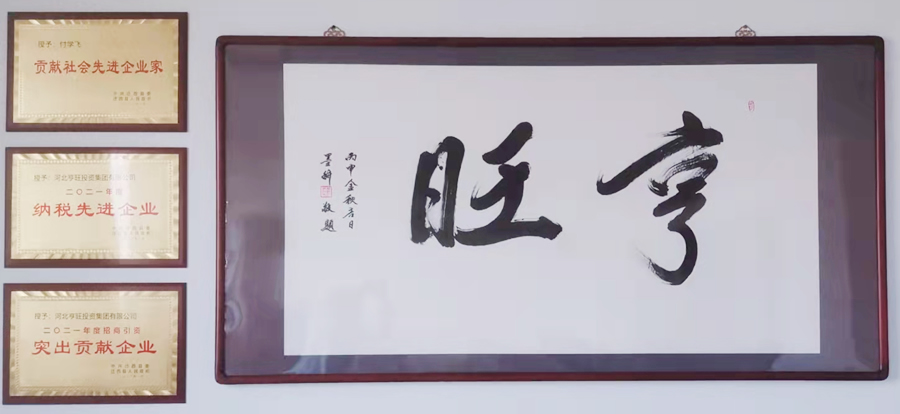 授予：付学飞
贡献社会先进企业家
授予：河北亨旺投资集团有限公司
二〇二一年度
纳税先进企业
授予：河北亨旺投资集团有限公司
二〇二一年度招商引资
突出贡献企业
亨旺
丙申金秋吉日
敬题